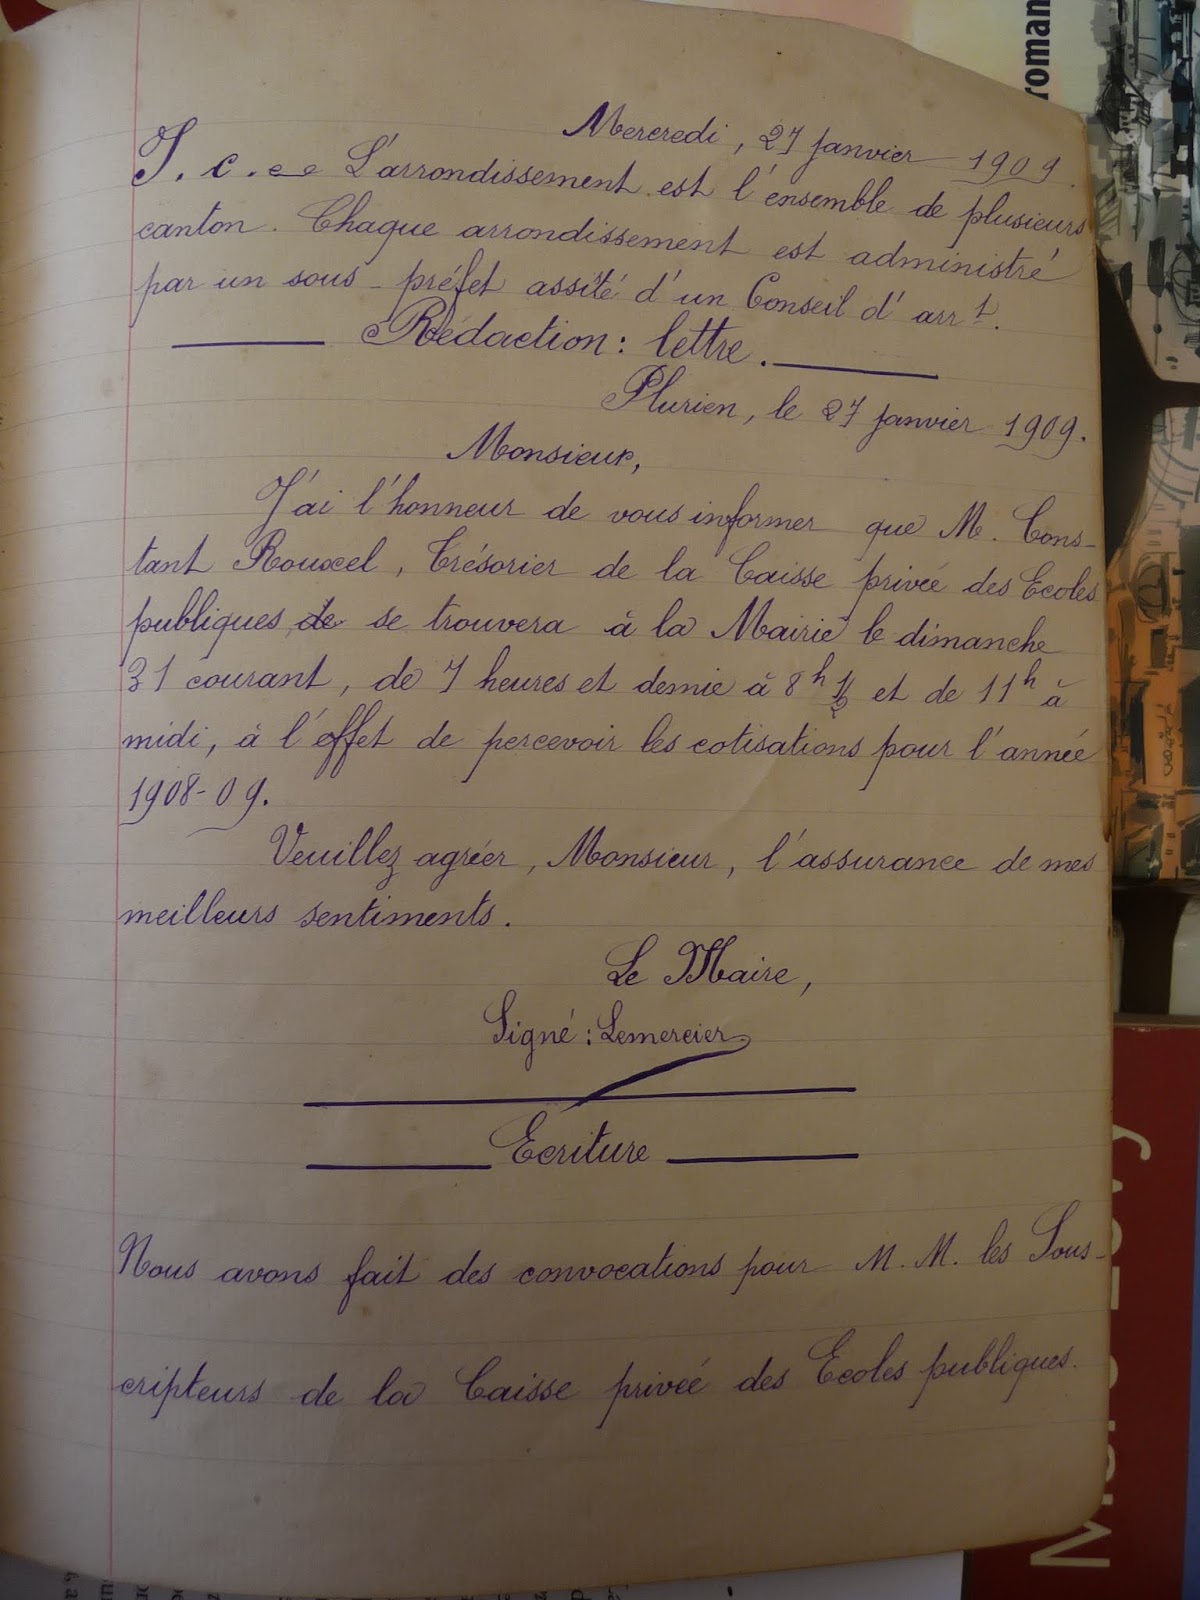 Mercredi, 27 janvier 1909.
I. c. ee L'arrondissement est l'ensemble de plusieurs
canton. Chaque arrondissement est administré
par un sous-préfet assité d'un Conseil d'arrt.
Rédaction : lettre.
Plurien, le 27 janvier 1909.
Monsieur,
J'ai l'honneur de vous informer que M. Cons-
tant Rouxel, Trésorier de la Caisse privée des Ecoles
publiques, de se trouvera à la Mairie le dimanche
31 courant, de 7 heures et demie à 8h ½ et de 11h à
midi, à l'effet de percevoir les cotisations pour l'année
1908-09.
Veuillez agréer, Monsieur, l'assurance de mes
meilleurs sentiments.
Le Maire,
Signé : Lemercier
Ecriture
Nous avons fait des convocations pour M. M. les Sous-
cripteurs de la Caisse privée des Ecoles publiques.
roman